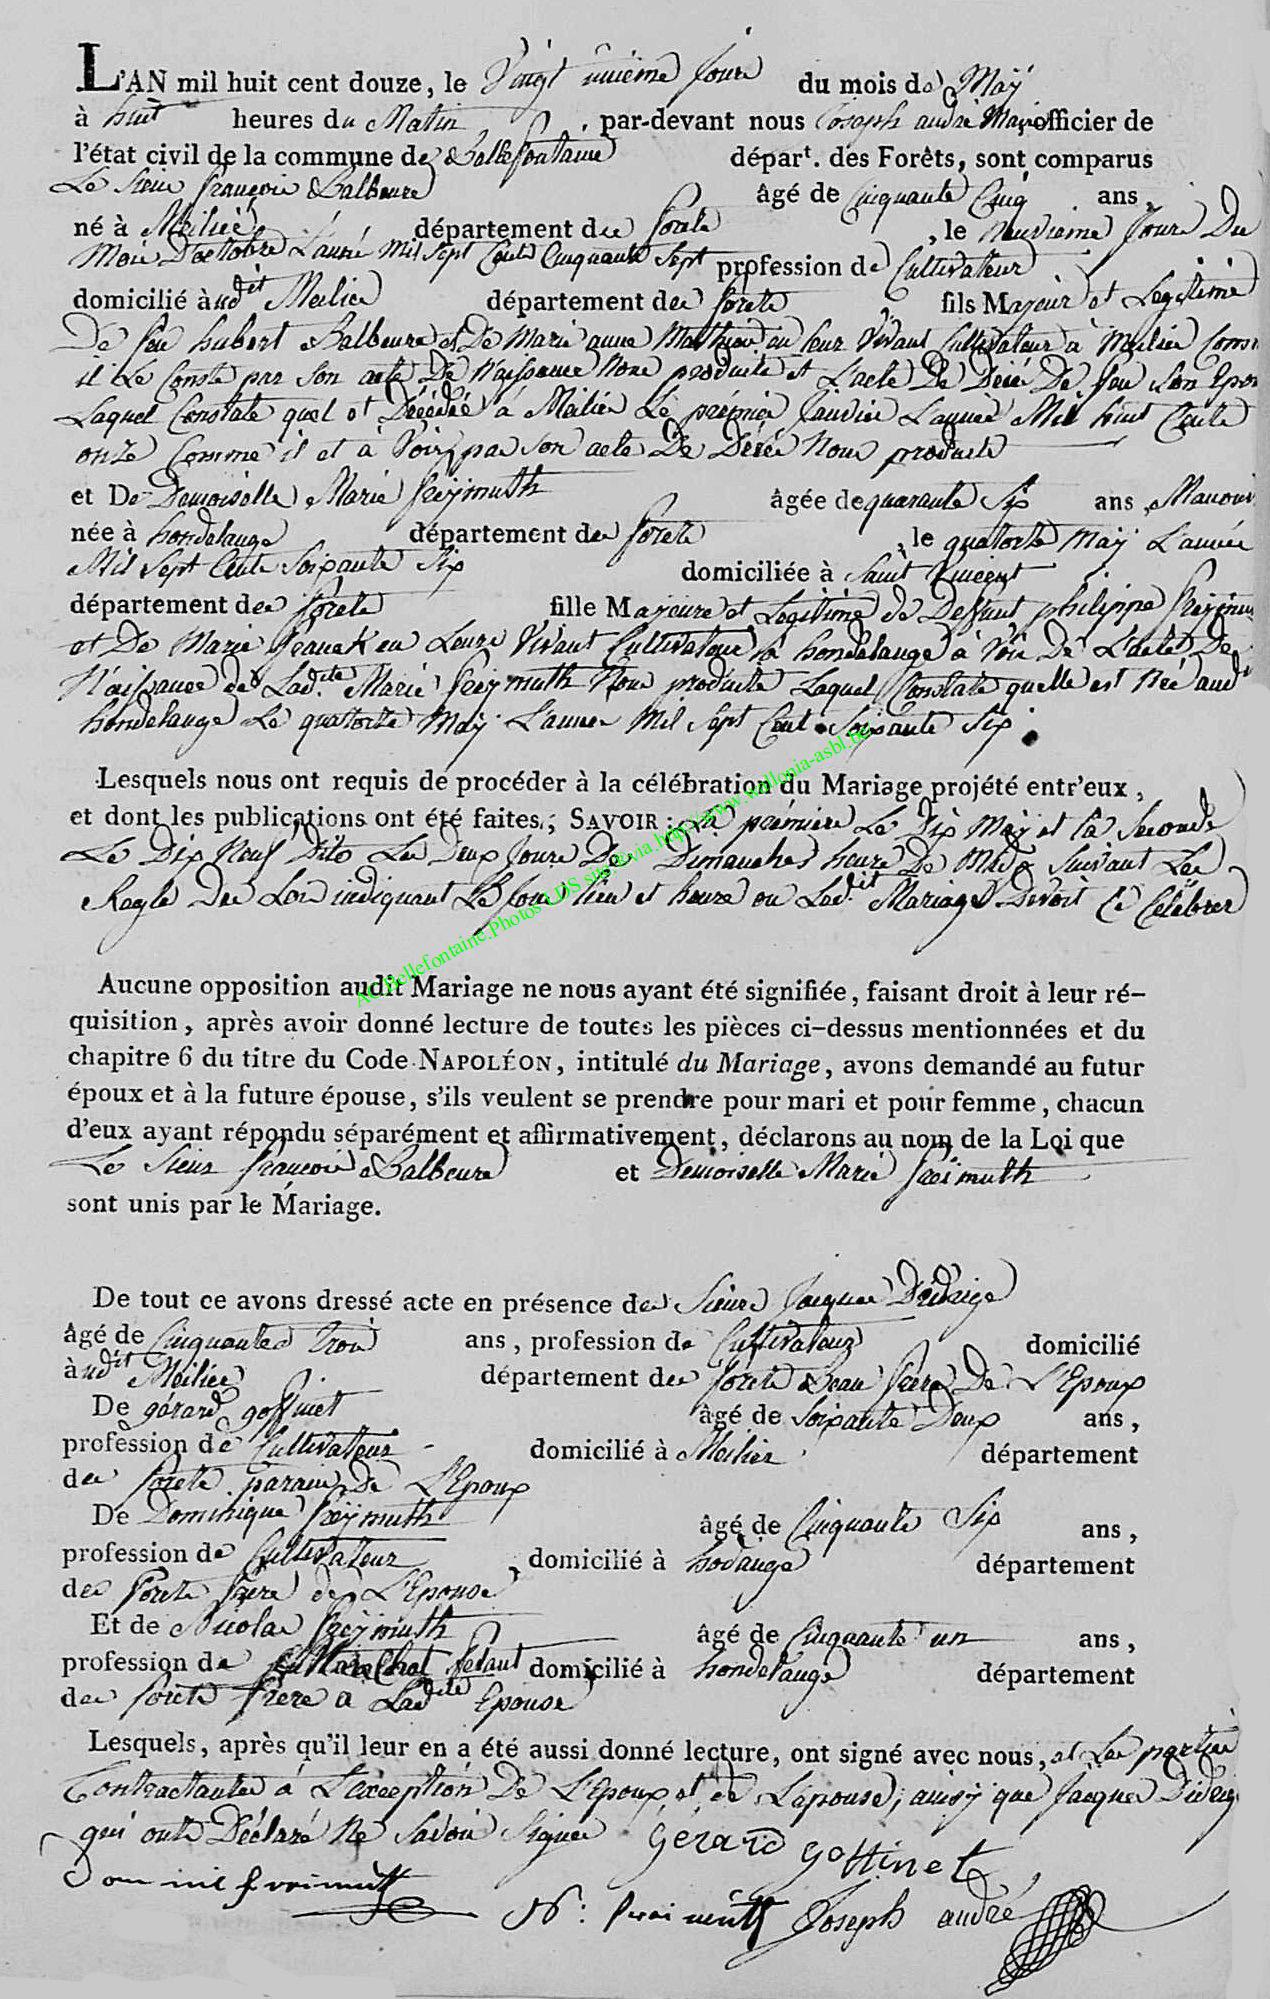 L'AN mil huit cent douze, le Vaigt unième Jour du mois de Maÿ
à huit heures du Matin, par-devant nous Joseph andré Maire officier de
l'état civil de la commune de Bellefontaine départ. des Forêts, sont comparus
Le Sieur françois Balbeure âgé de Cinquante Cinq ans,
né à Meilier département des forets, le neuvieme Jour Du
Mois D'octobre L'année Mil Sept Cents Cinquante Sept profession de Cultivateur
domicilié àudit Meilier département des forets, fils Majeur et Legitime
De feu hubert Balbeure et De Marie anne Mathieu en leur Vivant Cultivateur à Meilier Comme
il Le Conste par Son acte De Naissance Nous produite et L'acte De Décé De feu Son Epouse
Laquel Constate quel et Décédée à Meilier Le prémier Janvier L'année Mil huit Cents
onze Comme il et à Voir par Son acte De Décé Nous produite
et De Demoiselle Marie freÿmuth âgée de quarante Six ans,
née à hondelange département des forets, le quatorze Maÿ L'année
Mil Sept Cents Soixante Six domiciliée à Saint Vincent
département des forets fille Majeure et Legitime de Deffunt philippe freÿmuth
et De Marie franck en Leurs Vivant Cultivateur à hondelange à Voir De L'acte De
Naissance de Ladite Marie freÿmuth Nous produite Laquel Constate quelle est Née audit
hondelange Le quatorze Maÿ L'année Mil Sept Cent Soixante Six.
Lesquels nous ont requis de procéder à la célébration du Mariage projété entr'eux,
et dont les publications ont été faites; SAVOIR: La prémiere Le Dix Maÿ et La Seconde
Le Dix Neuf Dito Les Deux Jours De Dimanche heure De Midy Suivant Les
Regle Des Loix indiquant Le Jour lieu et heure ou Ledit Mariage Devoit Ce Célébrer
Aucune opposition audit Mariage ne nous ayant été signifiée, faisant droit à leur ré-
quisition, après avoir donné lecture de toutes les pièces ci-dessus mentionnées et du
chapitre 6 du titre du Code NAPOLÉON, intitulé du Mariage, avons demandé au futur
époux et à la future épouse, s'ils veulent se prendre pour mari et pour femme, chacun
d'eux ayant répondu séparément et affirmativement, déclarons au nom de la Loi que
Le Sieur françois Balbeure et Demoiselle Marie freimuth
sont unis par le Mariage.
De tout ce avons dressé acte en présence des Sieurs Jacque Didaige
âgé de Cinquante trois ans, profession de Cultivateur domicilié
àudit Meilier département des forets Beau frere De L'Epoux
De gérard goffinet âgé de Soixante Deux ans,
profession de Cultivateur domicilié à Meilier département
des forets parain De L'Epoux
De Dominique freÿmuth âgé de Cinquante Six ans,
profession de Cultivateur, domicilié à hodange département
des forets frere de L'Epouse
Et de Nicolas freÿmuth âgé de Cinquante un ans,
profession de Marechal ferant domicilié à hondelange département
des forets frere a Ladite Epouse
Lesquels, après qu'il leur en a été aussi donné lecture, ont signé avec nous, et Les partie
Contractantes à L'exception De L'Epoux et de L'épouse, ainsÿ que Jacque Didaige
qui onts Déclaré Ne Savoir Signer Gérard goffinet
Dominic freimuth
N: freimuth Joseph andré
AC.Bellefontaine.Photos LDS sttg@via.http://www.wallonia-asbl.be/